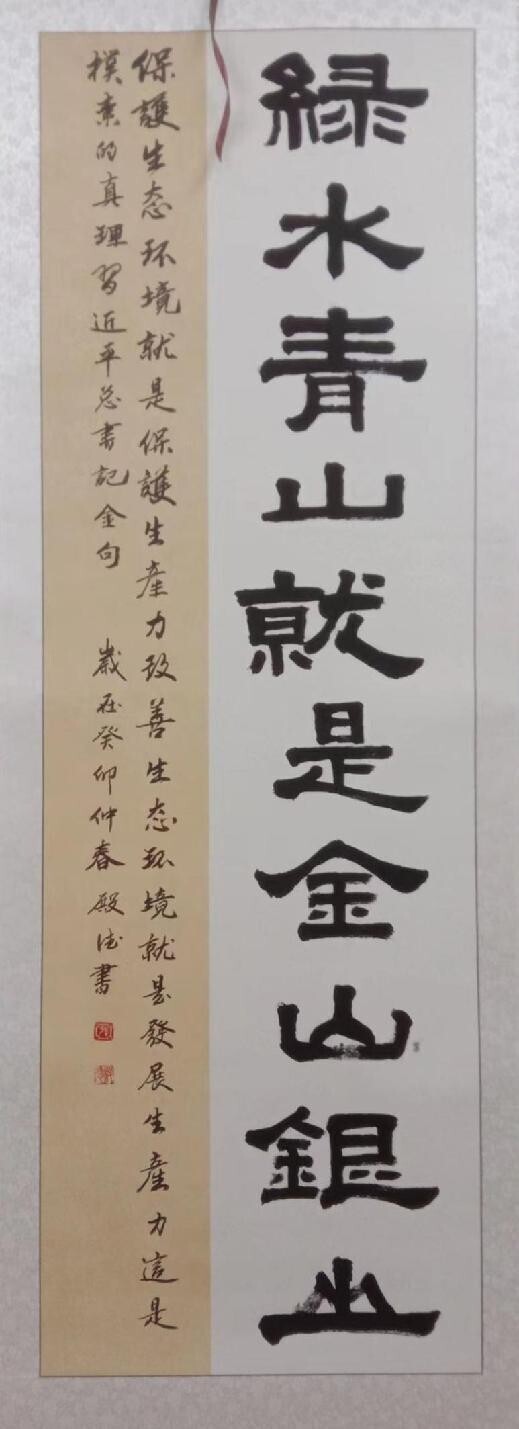 綠水青山就是金山銀山
保護生态环境就是保護生產力改善生态环境就是發展生產力這是
樸素的真理習近平总書記金句 歲在癸卯仲春殿德書